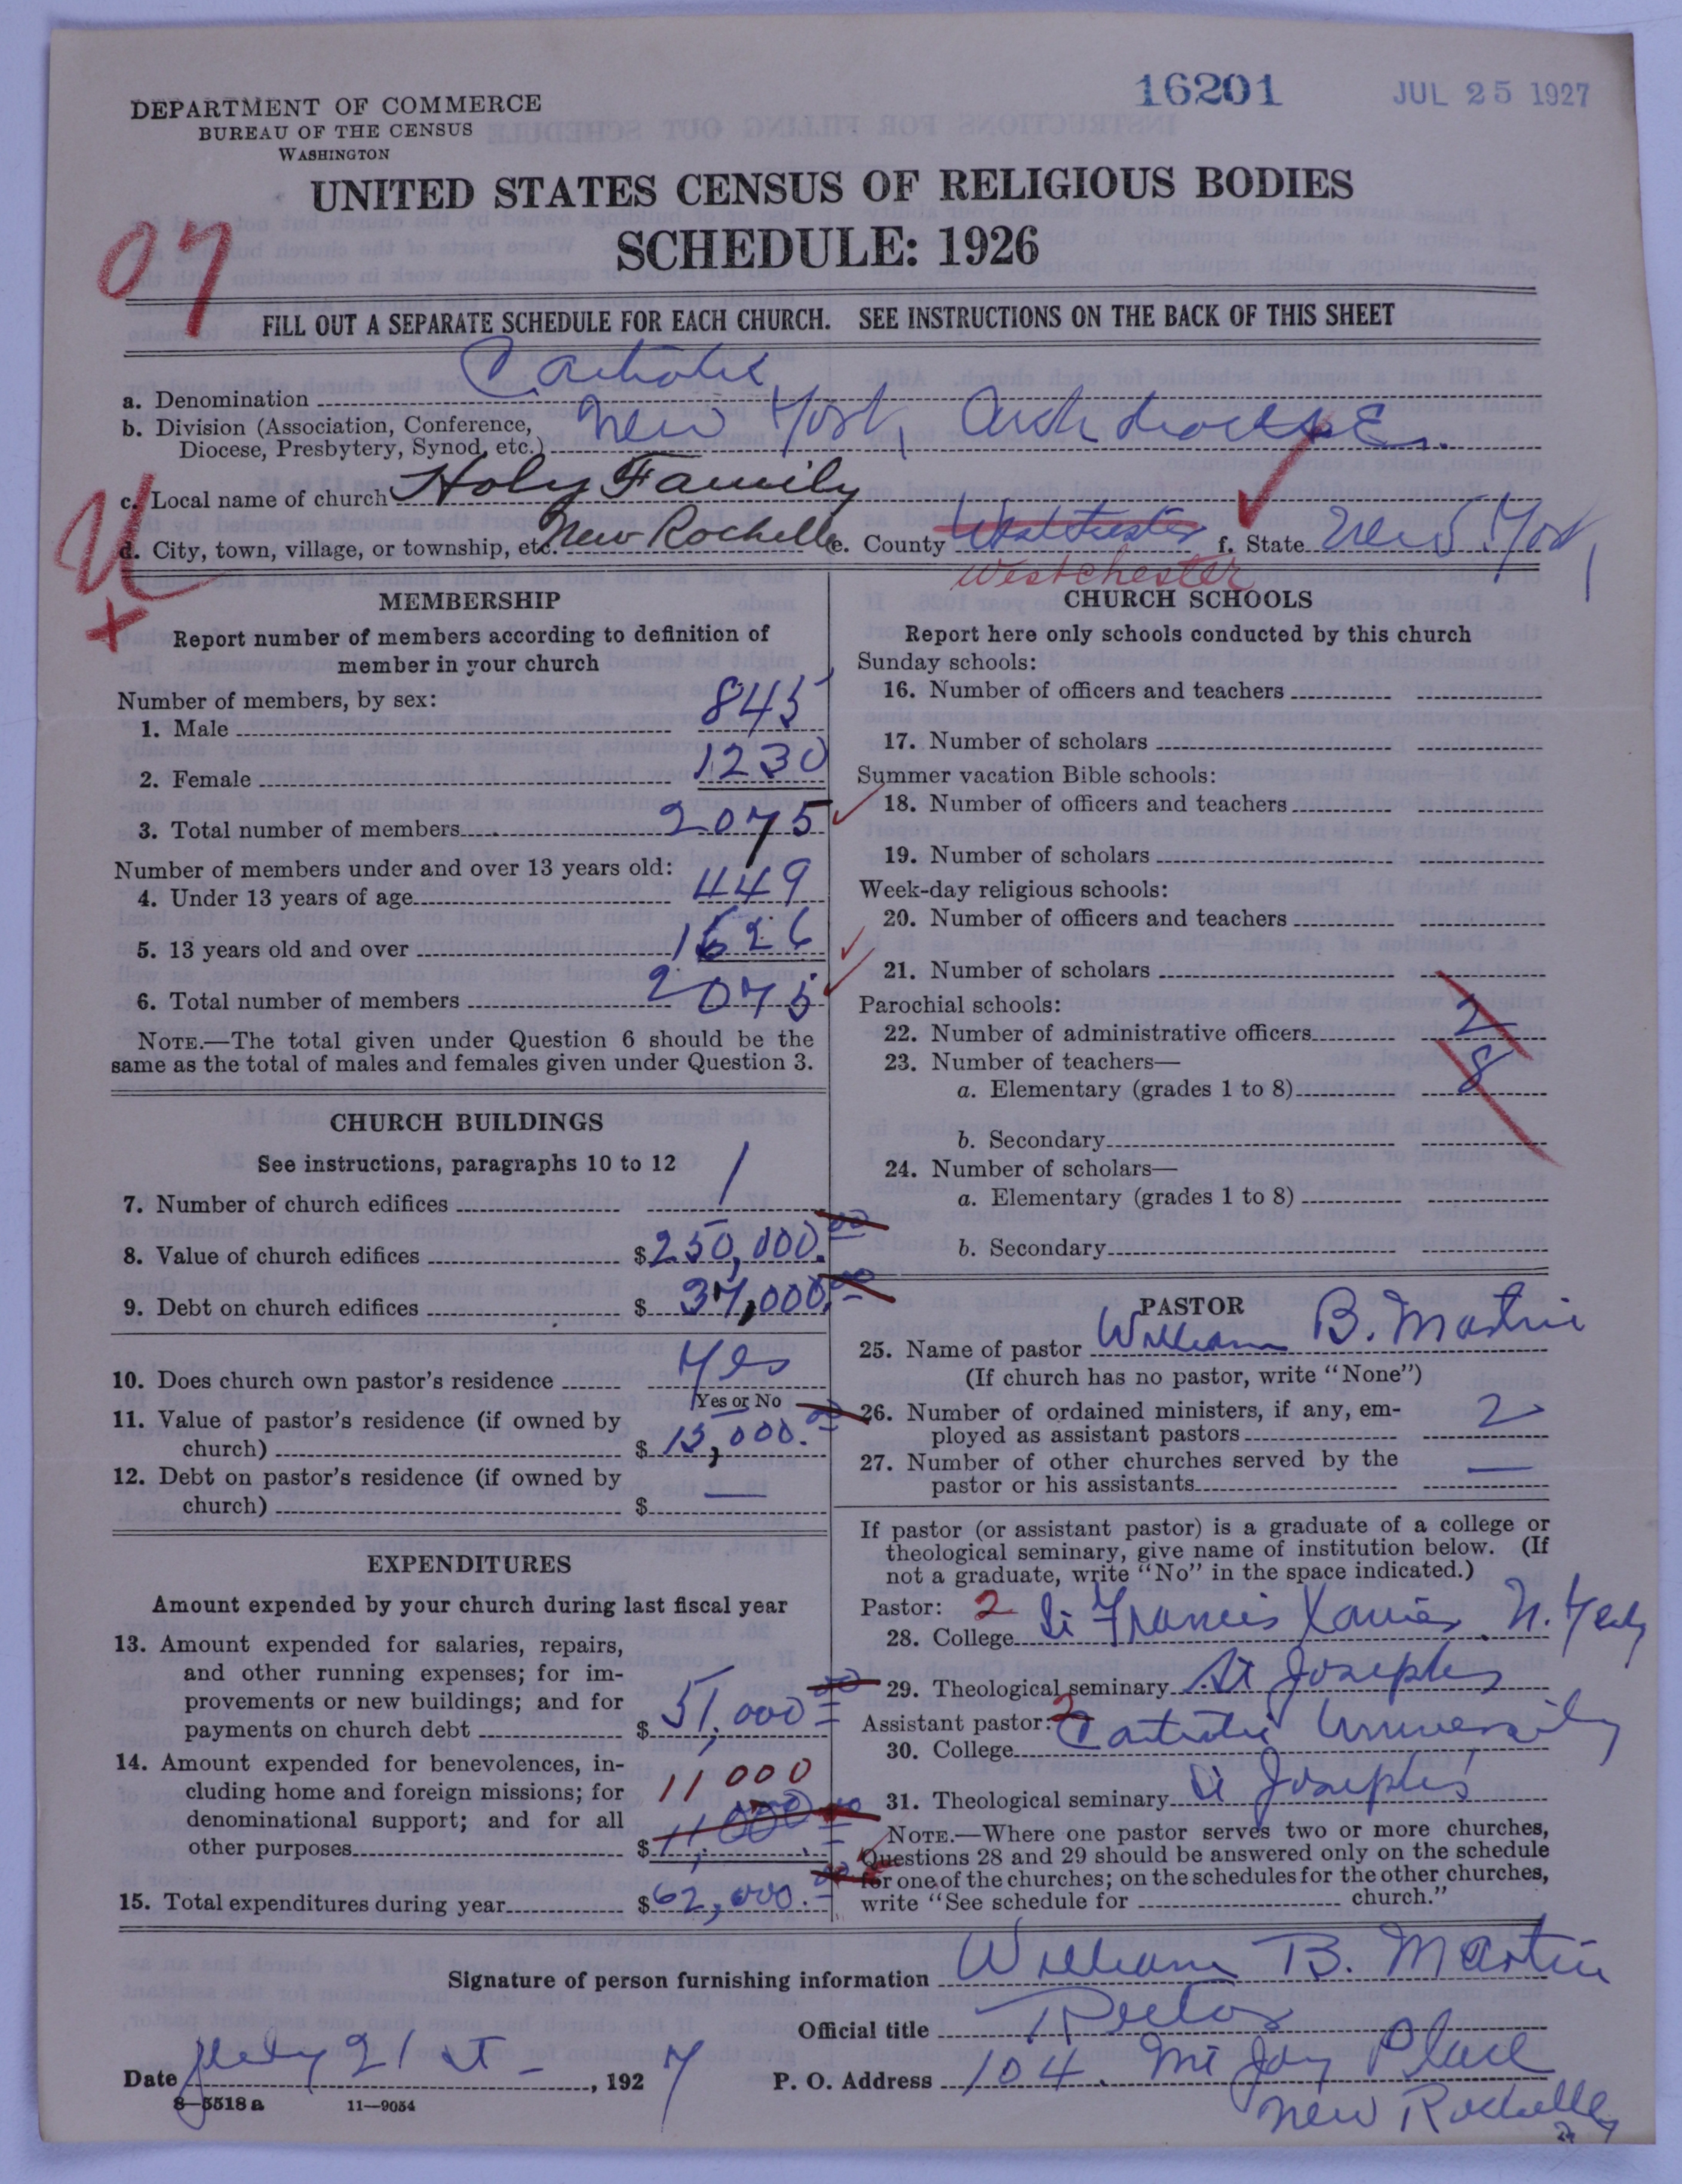 16201
JUL 25 1927
DEPARTMENT OF COMMERCE
BUREAU OF THE CENSUS
WASHINGTON
UNITED STATES CENSUS OF RELIGIOUS BODIES
SCHEDULE: 1926
FILL OUT A SEPARATE SCHEDULE FOR EACH CHURCH. SEE INSTRUCTIONS ON THE BACK OF THIS SHEET
a. Denomination Catholic
b. Division (Association, Conference, Diocese, Presbytery, Synod, etc.) New York, Archdiocese
c. Local name of church Holy Family
d. City, town, village, or township, etc. New Rochelle e. County Westchester f. State New York
Westchester
MEMBERSHIP
Report number of members according to definition of
member in your church
Number of members, by sex:
1. Male 845
2. Female 1230
3. Total number of members 2075
Number of members under and over 13 years old:
4. Under 13 years of age 449
5. 13 years old and over 1626
6. Total number of members 2075
NOTE.—The total given under Question 6 should be the
same as the total of males and females given under Question 3.
CHURCH BUILDINGS
See instructions, paragraphs 10 to 12
7. Number of church edifices 1
8. Value of church edifices $250,000.00
9. Debt on church edifices $37,000.00
10. Does church own pastor's residence Yes
Yes or No
11. Value of pastor's residence (if owned by
church) $15,000.00
12. Debt on pastor's residence (if owned by
church) $ —
EXPENDITURES
Amount expended by your church during last fiscal year
13. Amount expended for salaries, repairs,
and other running expenses; for im-
provements or new buildings; and for
payments on church debt $51,000 00
14. Amount expended for benevolences, in-
cluding home and foreign missions; for 11000
denominational support; and for all
other purposes $11,000 00
15. Total expenditures during year $62,000.00
CHURCH SCHOOLS
Report here only schools conducted by this church
Sunday schools:
16. Number of officers and teachers
17. Number of scholars
Summer vacation Bible schools:
18. Number of officers and teachers
19. Number of scholars
Week-day religious schools:
20. Number of officers and teachers
21. Number of scholars
Parochial schools:
22. Number of administrative officers 2
23. Number of teachers—
a. Elementary (grades 1 to 8) 8
b. Secondary
24. Number of scholars—
a. Elementary (grades 1 to 8)
b. Secondary
PASTOR
25. Name of pastor William B. Martin
(If church has no pastor, write "None")
26. Number of ordained ministers, if any, em-
ployed as assistant pastors 2
27. Number of other churches served by the
pastor or his assistants —
If pastor (or assistant pastor) is a graduate of a college or
theological seminary, give name of institution below. (If
not a graduate, write "No" in the space indicated.)
Pastor: 2
28. College St Francis Xavier N.Y City
29. Theological seminary St Josephs
Assistant pastor: 2
30. College Catholic University
31. Theological seminary St Josephs
NOTE.—Where one pastor serves two or more churches,
Questions 28 and 29 should be answered only on the schedule
for one of the churches; on the schedules for the other churches,
write "See schedule for church."
Signature of person furnishing information William B. Martin
Official title Rector
Date July 21st, 1927 P. O. Address 104. Mt Joy Place
New Rochelle
8—5518a 11—9054